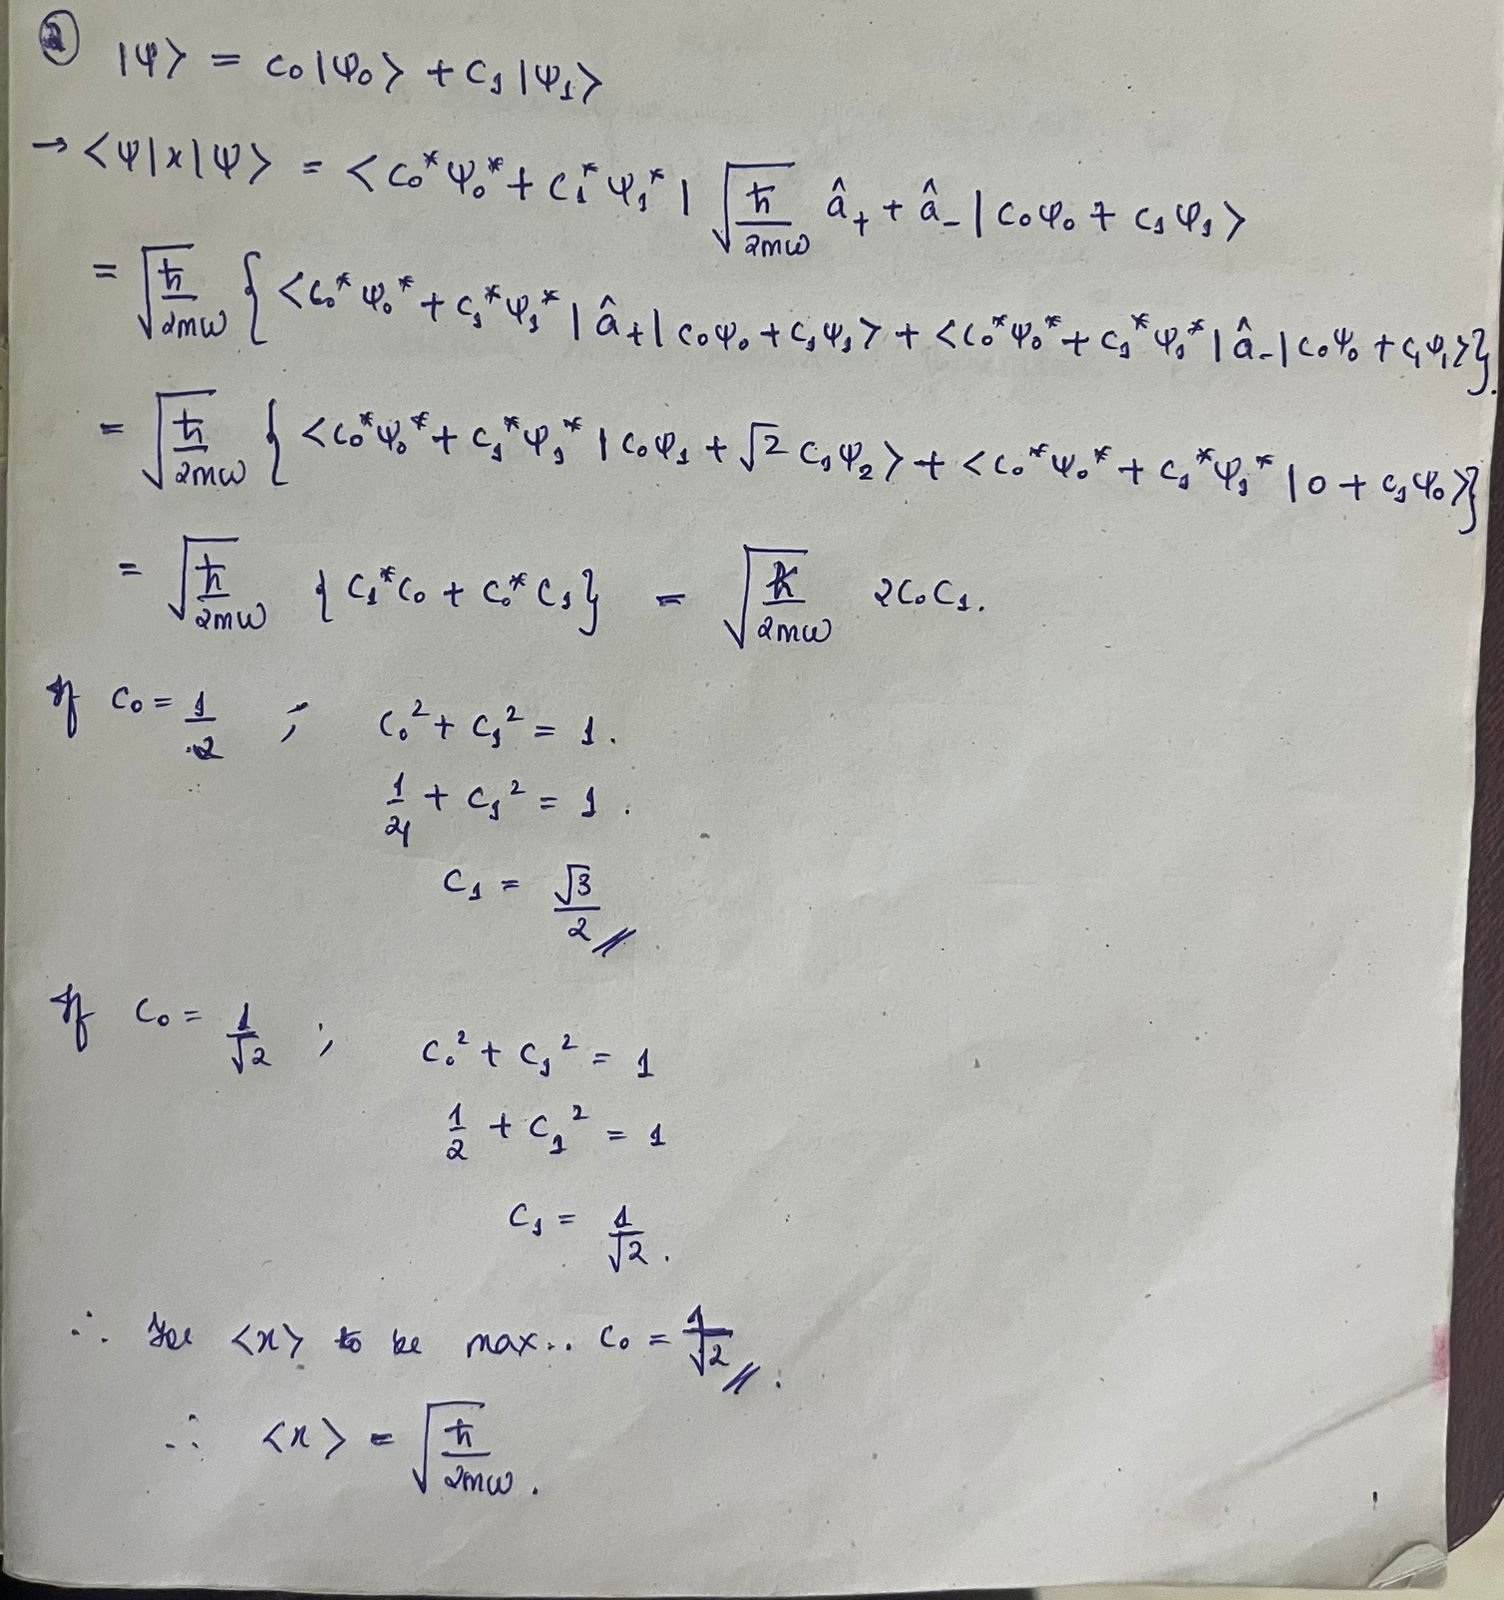 ② |ψ> = c₀|ψ₀> + c₁|ψ₁>
→ <ψ|x|ψ> = <c₀*ψ₀* + c₁*ψ₁*| √(ħ/2mω) â₊ + â₋ |c₀ψ₀ + c₁ψ₁>
= √(ħ/2mω) { <c₀*ψ₀* + c₁*ψ₁*| â₊ |c₀ψ₀ + c₁ψ₁> + <c₀*ψ₀* + c₁*ψ₁*| â₋ |c₀ψ₀ + c₁ψ₁> }.
= √(ħ/2mω) { <c₀*ψ₀* + c₁*ψ₁* | c₀ψ₁ + √2 c₁ψ₂> + <c₀*ψ₀* + c₁*ψ₁* | 0 + c₁ψ₀> }
= √(ħ/2mω) { c₁*c₀ + c₀*c₁ } = √(ħ/2mω) 2c₀c₁.
If c₀ = 1/2 ; c₀² + c₁² = 1.
1/4 + c₁² = 1.
c₁ = √3/2 //
If c₀ = 1/√2 ; c₀² + c₁² = 1
1/2 + c₁² = 1
c₁ = 1/√2.
∴ For <x> to be max.. c₀ = 1/√2 //.
∴ <x> = √(ħ/2mω).